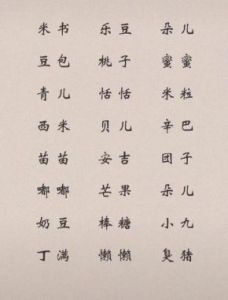 米书 乐豆 朵儿
豆包 桃子 蜜蜜
青儿 恬恬 米粒
西米 贝儿 辛巴
苗苗 安吉 团子
嘟嘟 芒果 朵儿
奶豆 棒糖 小九
丁满 懒懒 臭猪